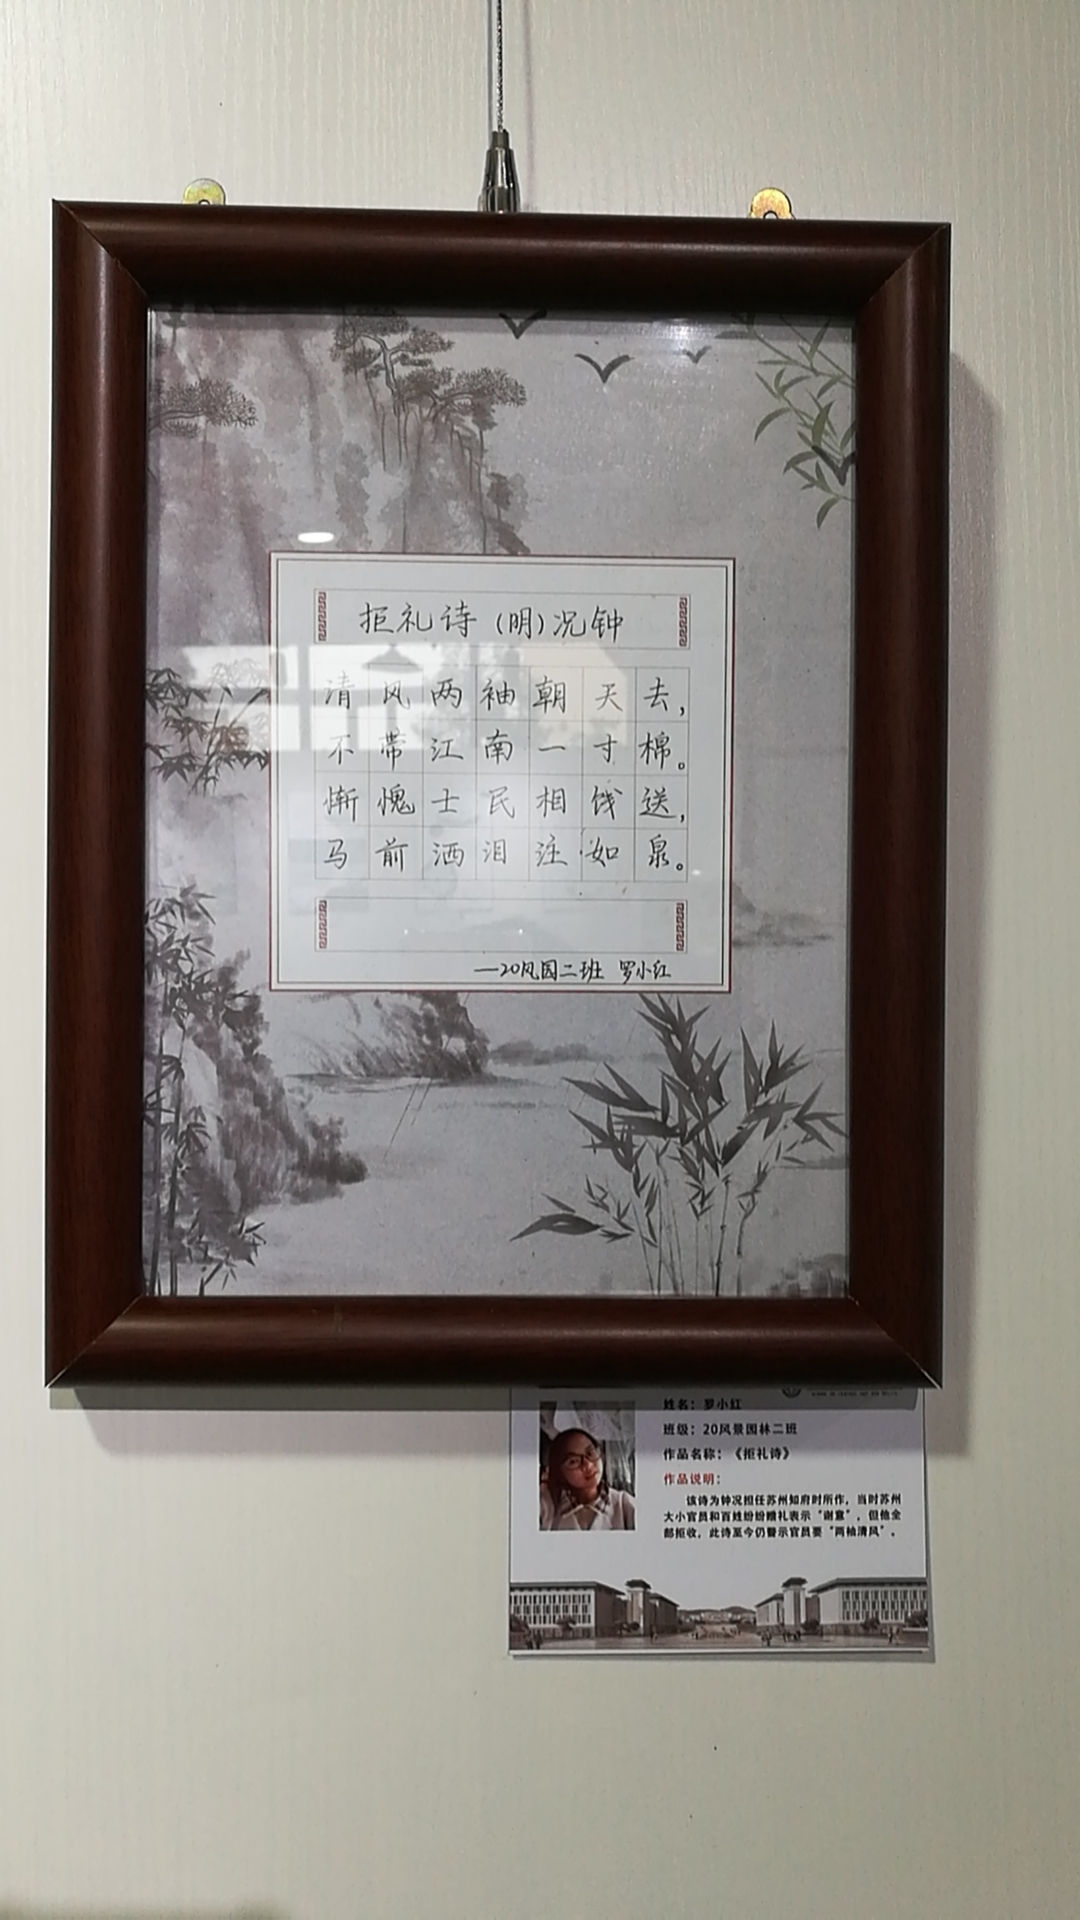 拒礼诗（明）况钟
清风两袖朝天去，
不带江南一寸棉。
惭愧士民相饯送，
马前洒泪注如泉。
—20风园二班 罗小红
姓名：罗小红
班级：20风景园林二班
作品名称：《拒礼诗》
作品说明：
该诗为钟况担任苏州知府时所作，当时苏州
大小官员和百姓纷纷赠礼表示“谢意”，但他全
部拒收，此诗至今仍警示官员要“两袖清风”。